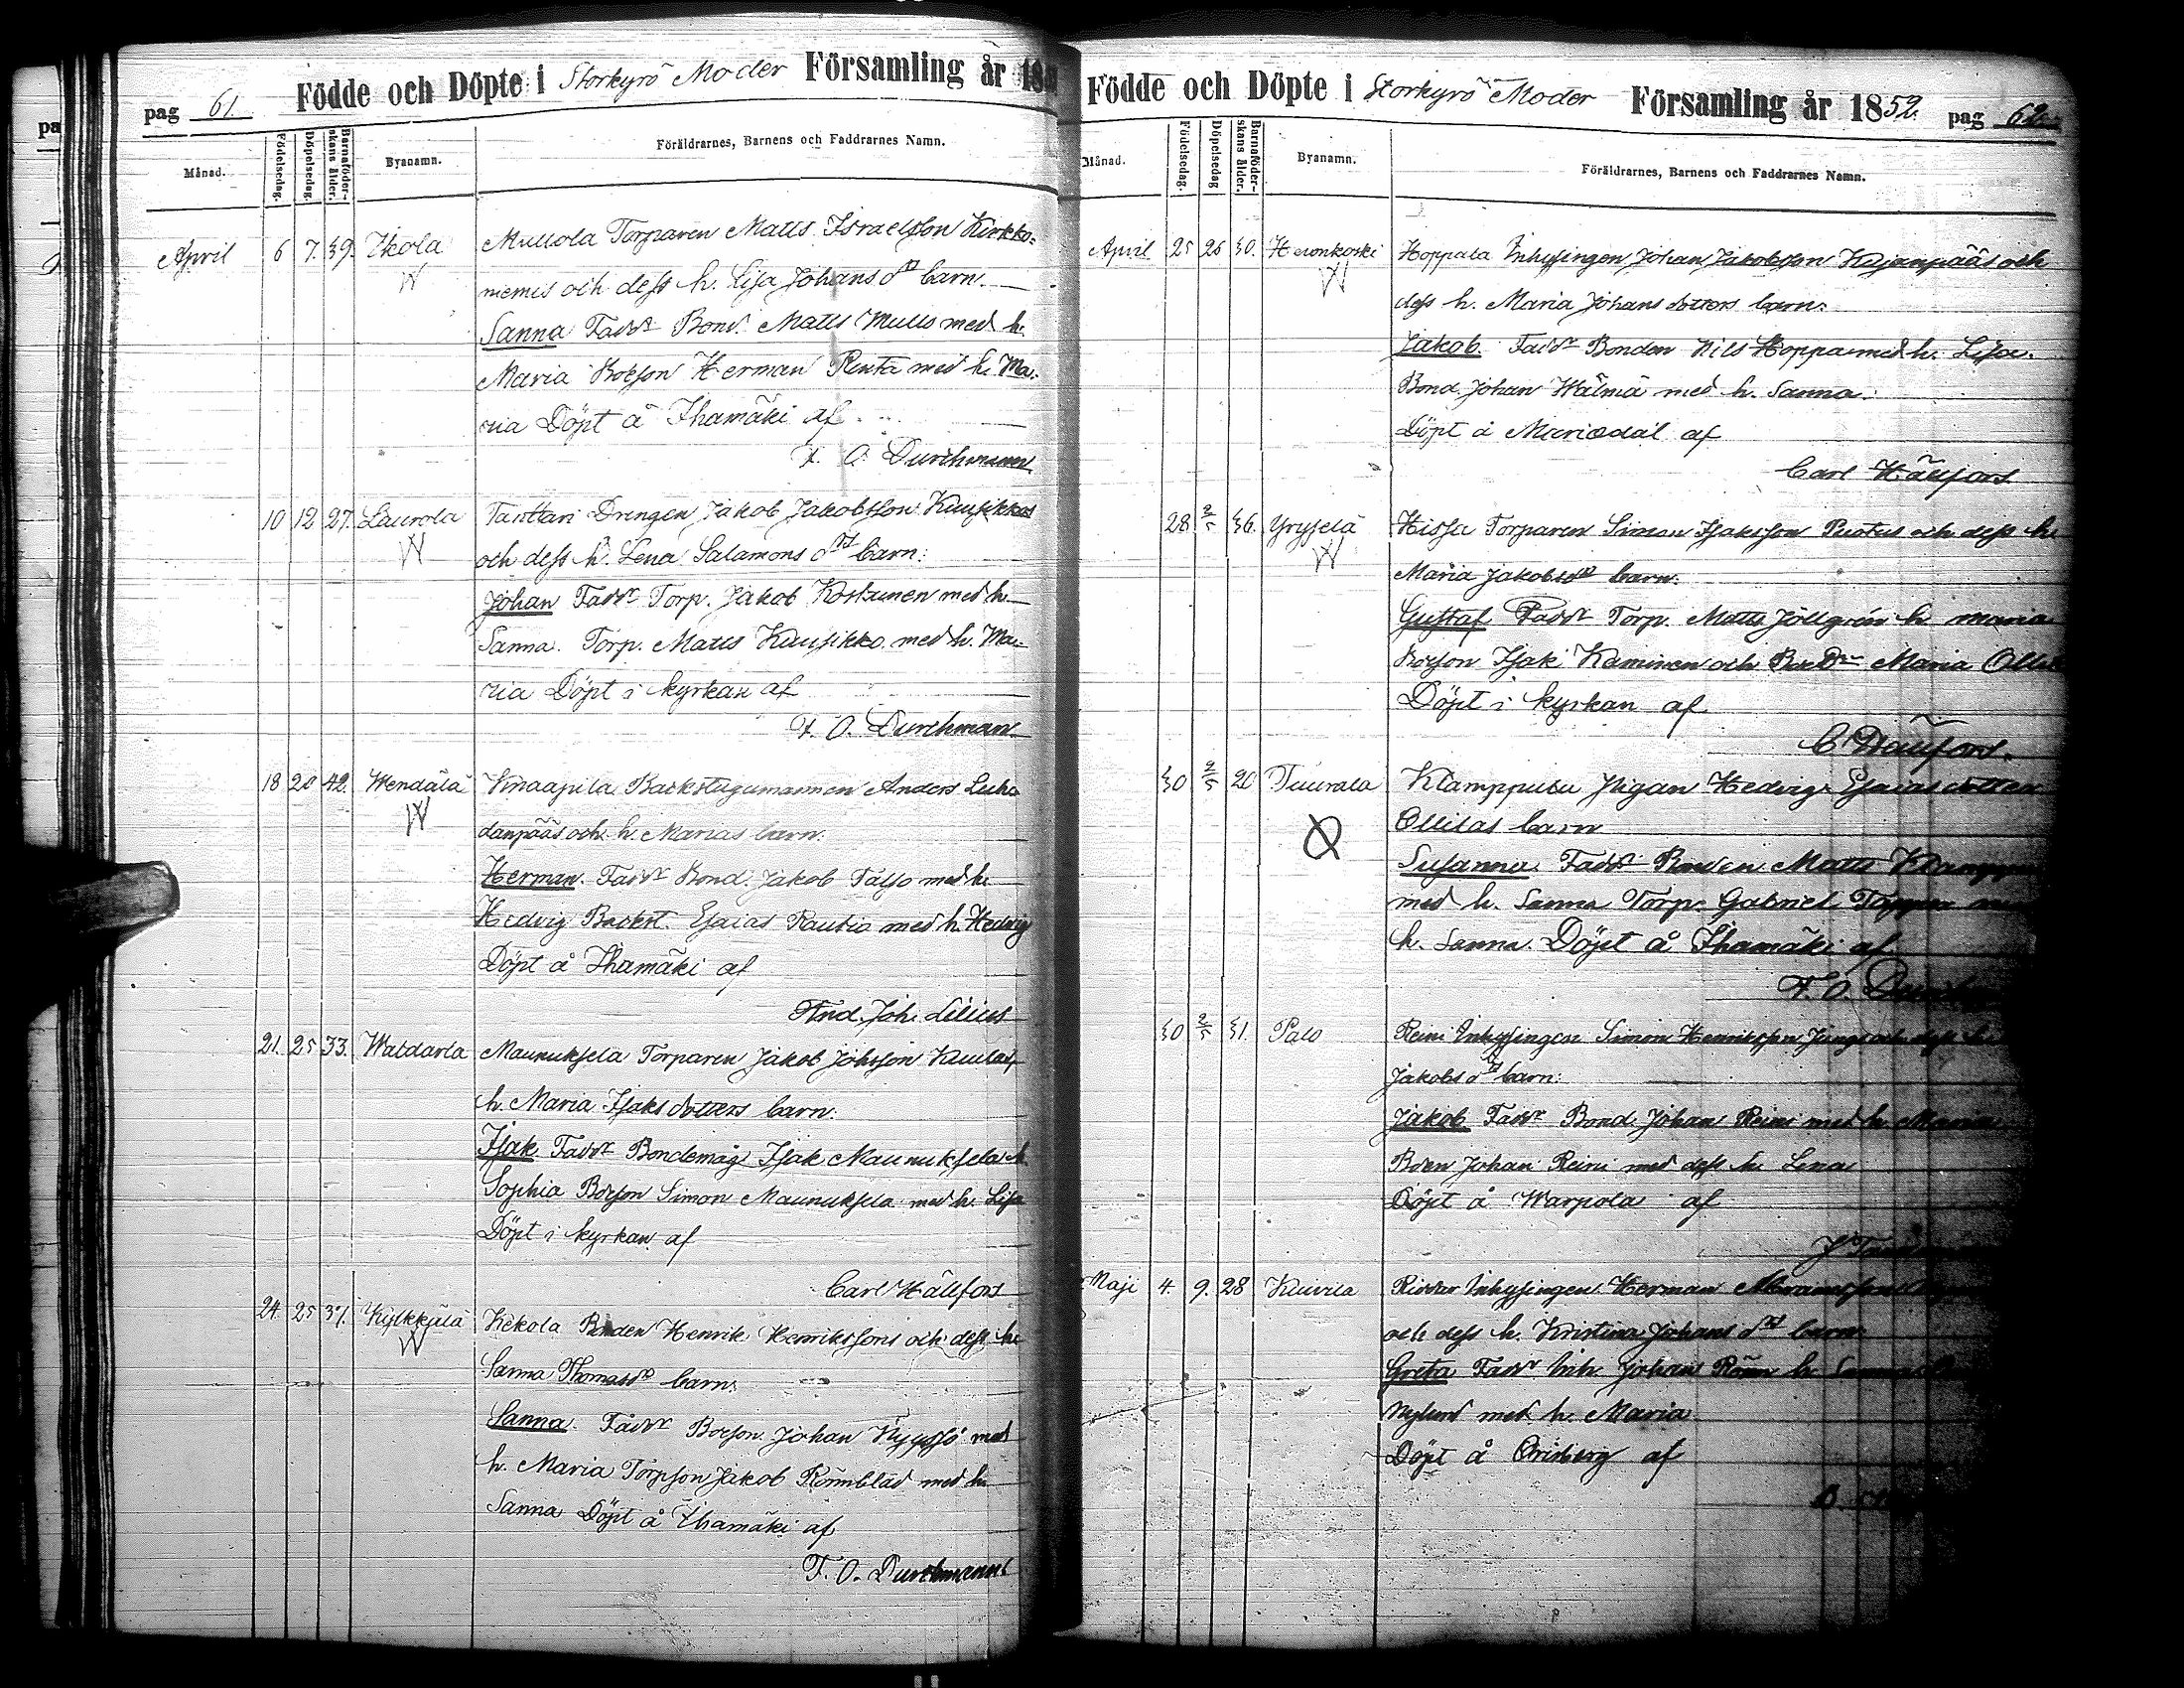 pag 61. Födde och Döpte i Storkyrö Moder Församling år 18
Månad. Födelsedag. Döpelsedag. Barnaföderskans ålder. Byanamn. Föräldrarnes, Barnens och Faddrarnes Namn.
April 6 7. 39. Ikola Mullola Torparen Matts Israelsson Kirkko-
niemis och dess h. Lisa Johans dr barn.
Sanna Faddr Bond. Matts Mullo med h.
Maria Boeson Herman Renta med h. Ma-
ria Döpt å Ihamäki af
F. O. Durchman
10 12 27. Laurola Tauttari Drengen Jakob Jakobsson Kuusikkos
W och dess h. Lena Salamons dr barn:
Johan Faddr Torp. Jakob Koskunen med h.
Sanna. Torp. Matts Kuusikko med h. Ma-
ria Döpt i kyrkan af
F. O. Durchman.
18 20 42. Wendälä Knaapila Backstugumannen Anders Luho
W danpääs och h. Marias barn:
Herman. Faddr Bond. Jakob Talso med h.
Hedvig Backst. Esaias Rautio med h. Hedvig
Döpt å Ihamäki af
And. Joh. Lilius
21. 25 33. Waldarla Maunuksela Torparen Jakob Johsson
h. Maria Isaksdotters barn:
Isak Faddr Bondemåg Isak Maunuksela h.
Sophia Boeson Simon Maunuksela med h. Lisa
Döpt i kyrkan af
Carl Hällfors
24. 25 37. Kylkkälä Kekola Bonden Henrik Henrikssons och dess h.
W Sanna Thomasdr barn:
Sanna. Faddr Boeson Johan med
h. Maria Torpson Jakob Rönnblad med h.
Sanna Döpt å Ihamäki af
F. O. Durchman
Födde och Döpte i Storkyrö Moder Församling år 1852. pag 62.
Månad. Födelsedag. Döpelsedag Barnaföderskans ålder. Byanamn. Föräldrarnes, Barnens och Faddrarnes Namn.
April 25 26 30. Heronkoski Hoppala Inhysingen Johan Jakobsson Kujanpääs och
W dess h. Maria Johans dotters barn:
Jakob. Faddr Bonden Nils Hoppa med h. Lisa.
Bond. Johan Wälmä med h. Sanna.
Döpt å Mariedal af
Carl Hällfors
28. 2/5 36. Yryselä Hissa Torparen Simon Isaksson Puotus och dess h.
W Maria Jakobsdr barn:
Gustaf Faddr Torp. Matts Jöllgrén h. Maria
Boeson Isak Kaminen och Maria
Döpt i kyrkan af
C. Hällfors.
30 2/5 20 Tuurala Klamppulu Pigan Hedvig Esaias dotter
Ollilas barn
Susanna Faddr Bonden Matts
med h. Sanna Torp. Gabriel
h. Sanna. Döpt å Ihamäki af
F. O.
30 2/5 31. Palo Reini Inhysingen Simon Henriksson Jungs och dess h.
Jakobs dr barn:
Jakob Faddr Bond. Johan Reini med h. Maria
Boen Johan Reini med dess h. Lena
Döpt å Warpola af
Maji 4. 9. 28 Kuivila Inhysingen Herman
och dess h. Kristina Johans dr barn:
Greta Faddr Inh. Johan h.
Nylund med h. Maria
Döpt å Orisberg af